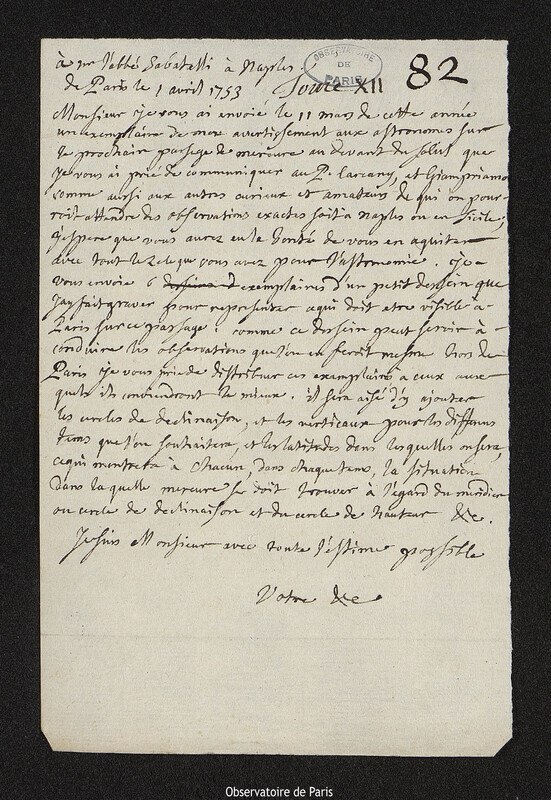 à mr l'abbé Sabatelli à Naples.
de Paris le 1 avril 1753
OBSERVATOIRE DE PARIS
XII
82
Monsieur je vous ai envoié le 11 mars de cette année
un exemplaire de mon avertissement aux astronomes sur
le prochain passage de mercure au devant du soleil que
je vous ai prié de communiquer au P. Carcani, et Giampriamo
comme aussi aux autres curieux et amateurs de qui on pour-
roit attendre des observations exactes soit à naples ou en sicile;
j'espere que vous aurez eu la bonté de vous en aquiter
avec tout le zele que vous avez pour l'astronomie. je
vous envoie 6 exemplaires d'un petit dessein que
j'ay fait graver pour representer ce qui doit etre visible à
Paris sur ce passage. comme ce dessein peut servir à
conduire les observations que l'on en feroit mesme hors de
Paris je vous prie de distribuer ces exemplaires à ceux aux
quels ils conviendront le mieux. il sera aisé d'y ajouter
les cercles de declinaison, et les verticaux pour les differens
tems que l'on souhaitera, et les latitudes dans lesquelles on sera,
ce qui montrera à chacun, dans chaque tems, la situation
dans la quelle mercure se doit trouver à l'égard du meridien
ou cercle de declinaison et du cercle de hauteur &c.
Je suis Monsieur avec toute l'estime possible
Votre &c
Observatoire de Paris